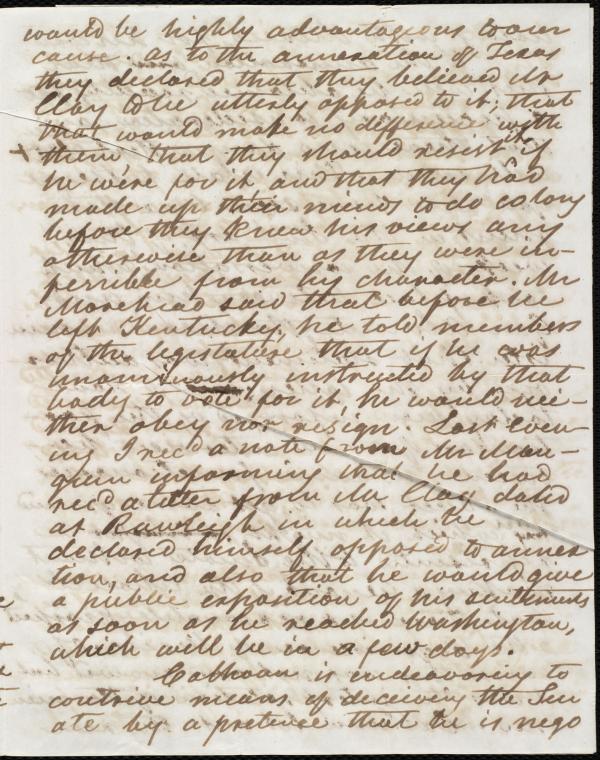 would be highly advantageous to our
cause. as to the annexation of Texas
they declared that they believed Mr
Clay to be utterly opposed to it, that
that would make no difference with
them, that they should resist if
he were for it and that they had
made up their minds to do so long
before they knew his views any
otherwise than as they were in-
ferrible from his character. Mr
Morehead said that before he
left Kentucky, he told members
of the legislature that if he was
unanimously instructed by that
body to vote for it, he would nei-
ther obey nor resign. Last even-
ing I rec'd a note from Mr Man-
gum informing that he had
rec'd a letter from Mr Clay dated
at Rawleigh in which he
declared himself opposed to annex
tion, and also that he would give
a public exposition of his sentiments
as soon as he reached Washington,
which will be in a few days.
Calhoun is endeavoring to
contrive means of deceiving the Sen
ate by a pretence that he is nego